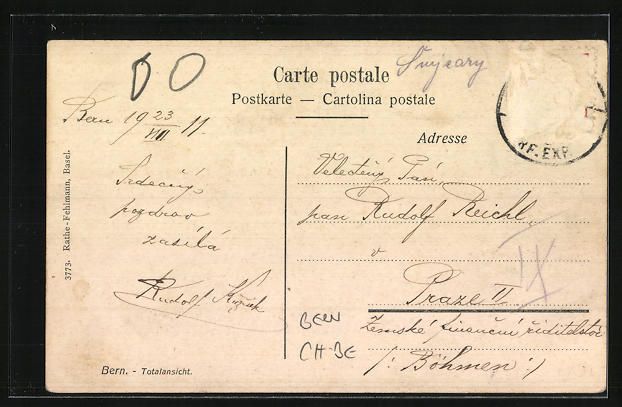 Švýcary
Carte postale
Postkarte — Cartolina postale
BF. EXP.
Bern 19 23/VIII 11.
Adresse
Srdečný
pozdrav
zasílá
Rudolf
Veletěný Pán
pan Rudolf Reichl,
v
Praze II
IX
Zemské finanční ředitelství
/: Böhmen :/
BERN
CH-BE
Bern. - Totalansicht.
3773. Rathe-Fehlmann, Basel.